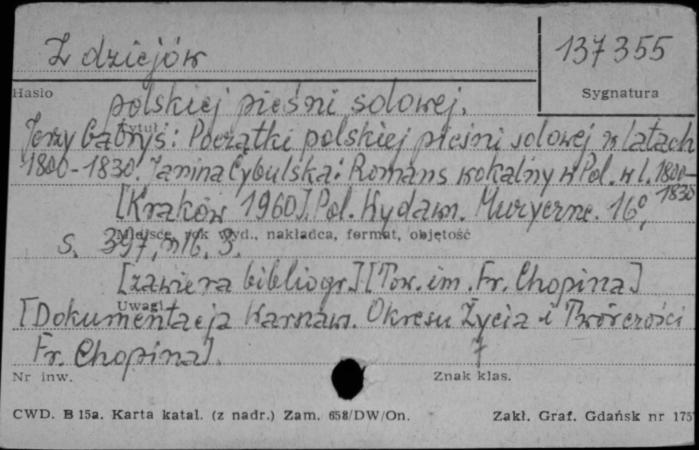 Z dziejów
137355
Hasło
Sygnatura
polskiej pieśni solowej.
Tytuł
Jerzy Gabryś: Początki polskiej pieśni solowej w latach
1800-1830. Janina Cybulska: Romans wokalny w Pol. w l. 1800-
1830
[Kraków 1960]. Pol. Wydawn. Muzyczne. 16°,
Miejsce, rok wyd., nakładca, format, objętość
s. 397, nlb. 3.
[zawiera bibliogr.] [Tow. im. Fr. Chopina]
Uwagi
[Dokumentacja Warszaw. Okresu Życia i Twórczości
Fr. Chopina].
7
Nr inw.
Znak klas.
CWD. B 15a. Karta katal. (z nadr.) Zam. 658/DW/On.
Zakł. Graf. Gdańsk nr 175